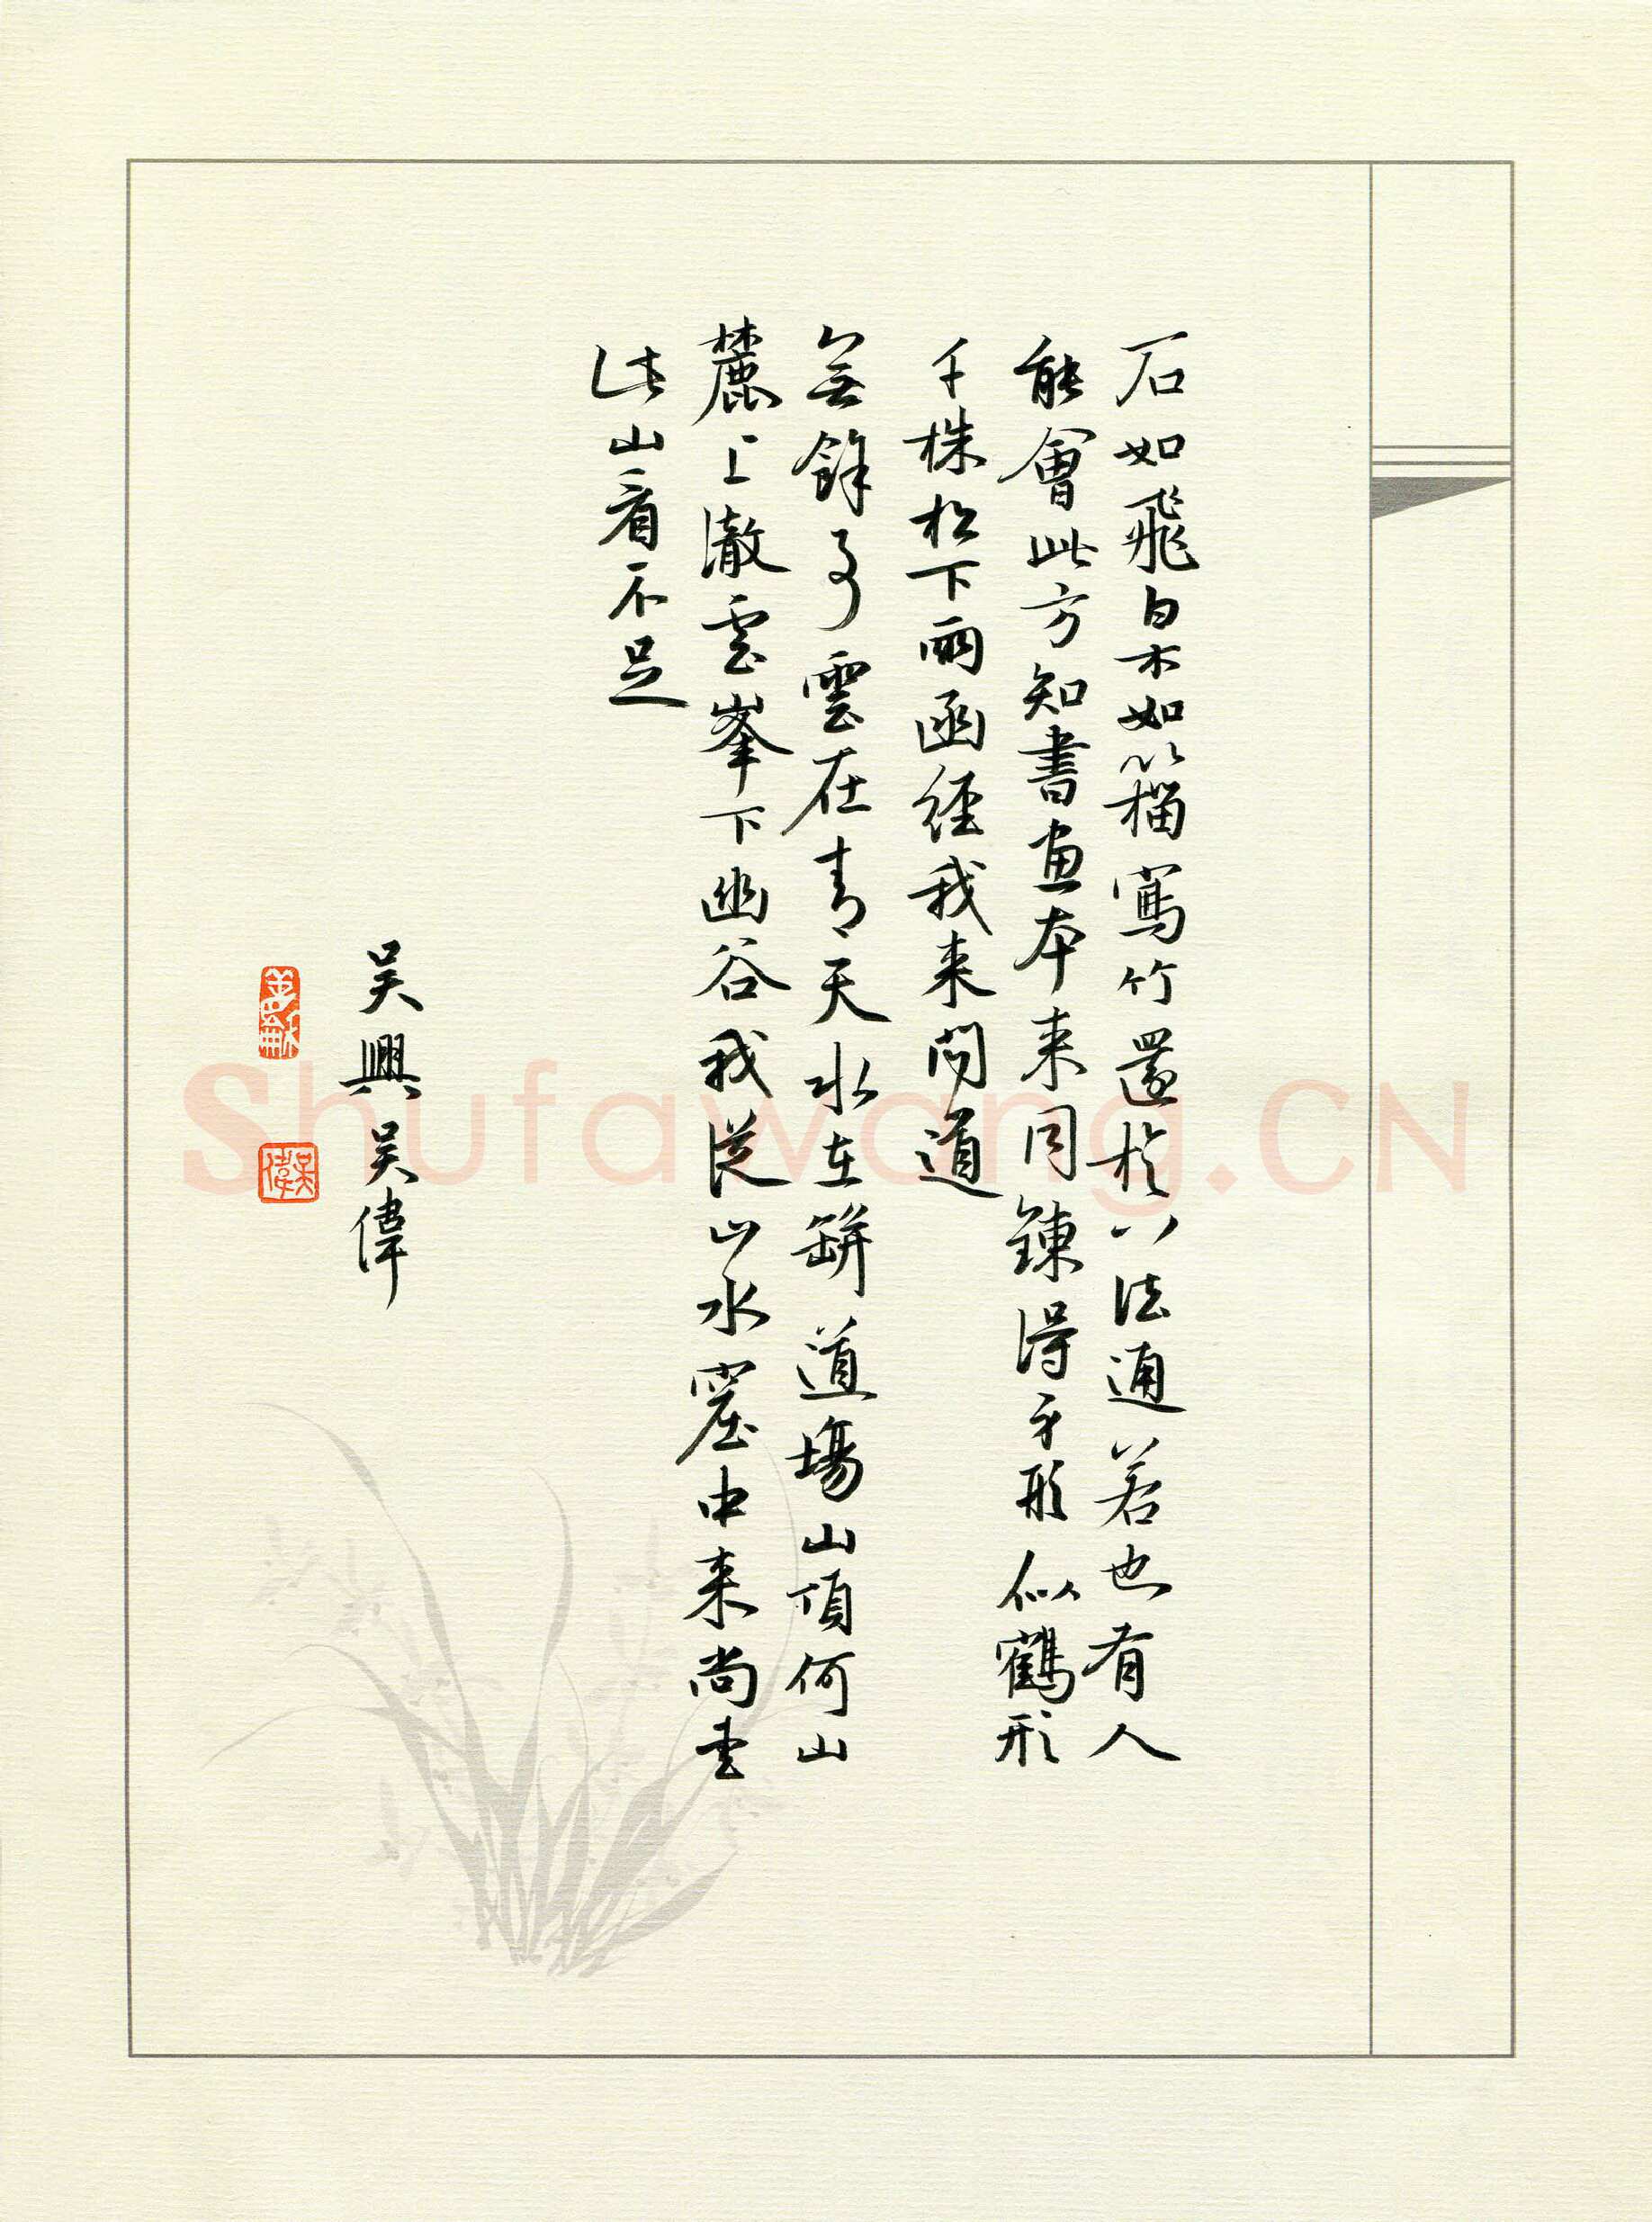 石如飛白木如籀寫竹還於八法通若也有人
能會此方知書畫本来同鍊得身形似鶴形
千株松下兩函經我来問道
無餘事雲在青天水在缾道場山頂何山
麓上澈雲峯下幽谷我從山水窟中来尚愛
此山看不足
吳興吳偉
吳偉
Shufawang.CN